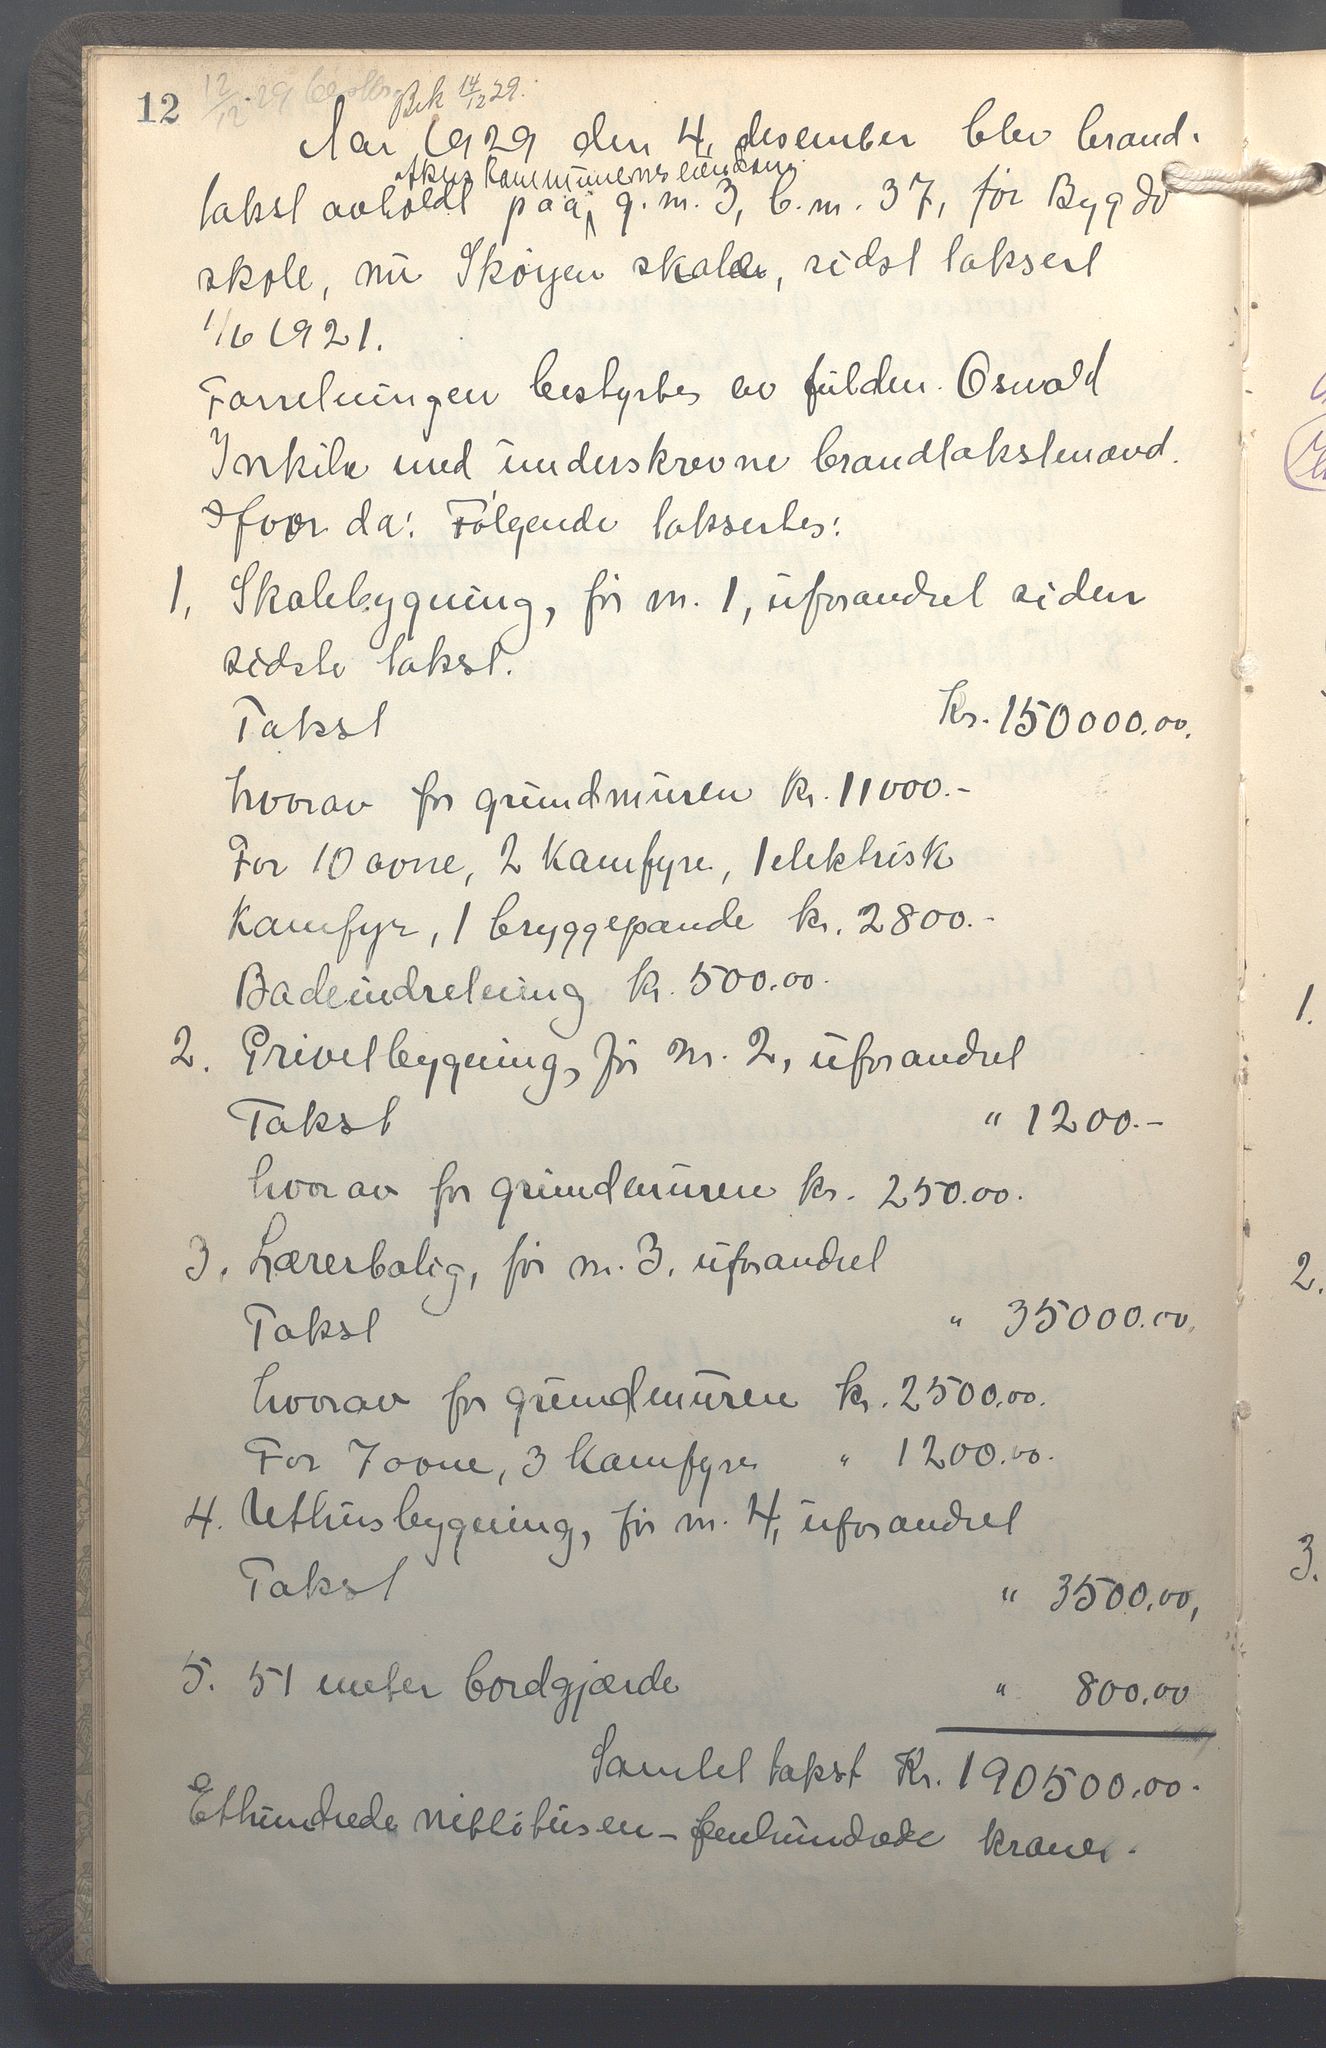 12
12/12 29
Bek 14/12 29.
Aar 1929 den 4. desember blev brand-
Akers kommunenes eiendom
takst avholdt paa g. nr. 3, b. nr. 37, før Bygdø
skole, nu Skøyen skole, sidst taksert
1/6 1921.
Forretningen bestyrtes av fuldm. Osvald
Inkila med underskrevne brandtakstmænd.
Hvor da: Følgende taksertes:
1, Skolebygning, før nr. 1, uforandret siden
sidste takst.
Takst Kr. 150000.00.
hvorav for grundmuren kr. 11000.-
For 10 ovne, 2 Komfyre, 1 elektrisk
Komfyr, 1 bryggepande kr. 2800.-
Badeindretning kr. 500.00.
2. Privetbygning, før nr. 2, uforandret
Takst " 1200.-
hvorav for grundmuren kr. 250.00.
3. Lærerbolig, før nr. 3, uforandret
Takst " 35000.00.
hvorav for grundmuren kr. 2500.00.
For 7 ovne, 3 Komfyre " 1200.00.
4. Uthusbygning, før nr. 4, uforandret
Takst " 3500.00,
5. 51 meter bordgjærde " 800.00
Samlet takst Kr. 190500.00.
Ethundrede nittitusen-femhundrede kroner.
1.
2.
3.